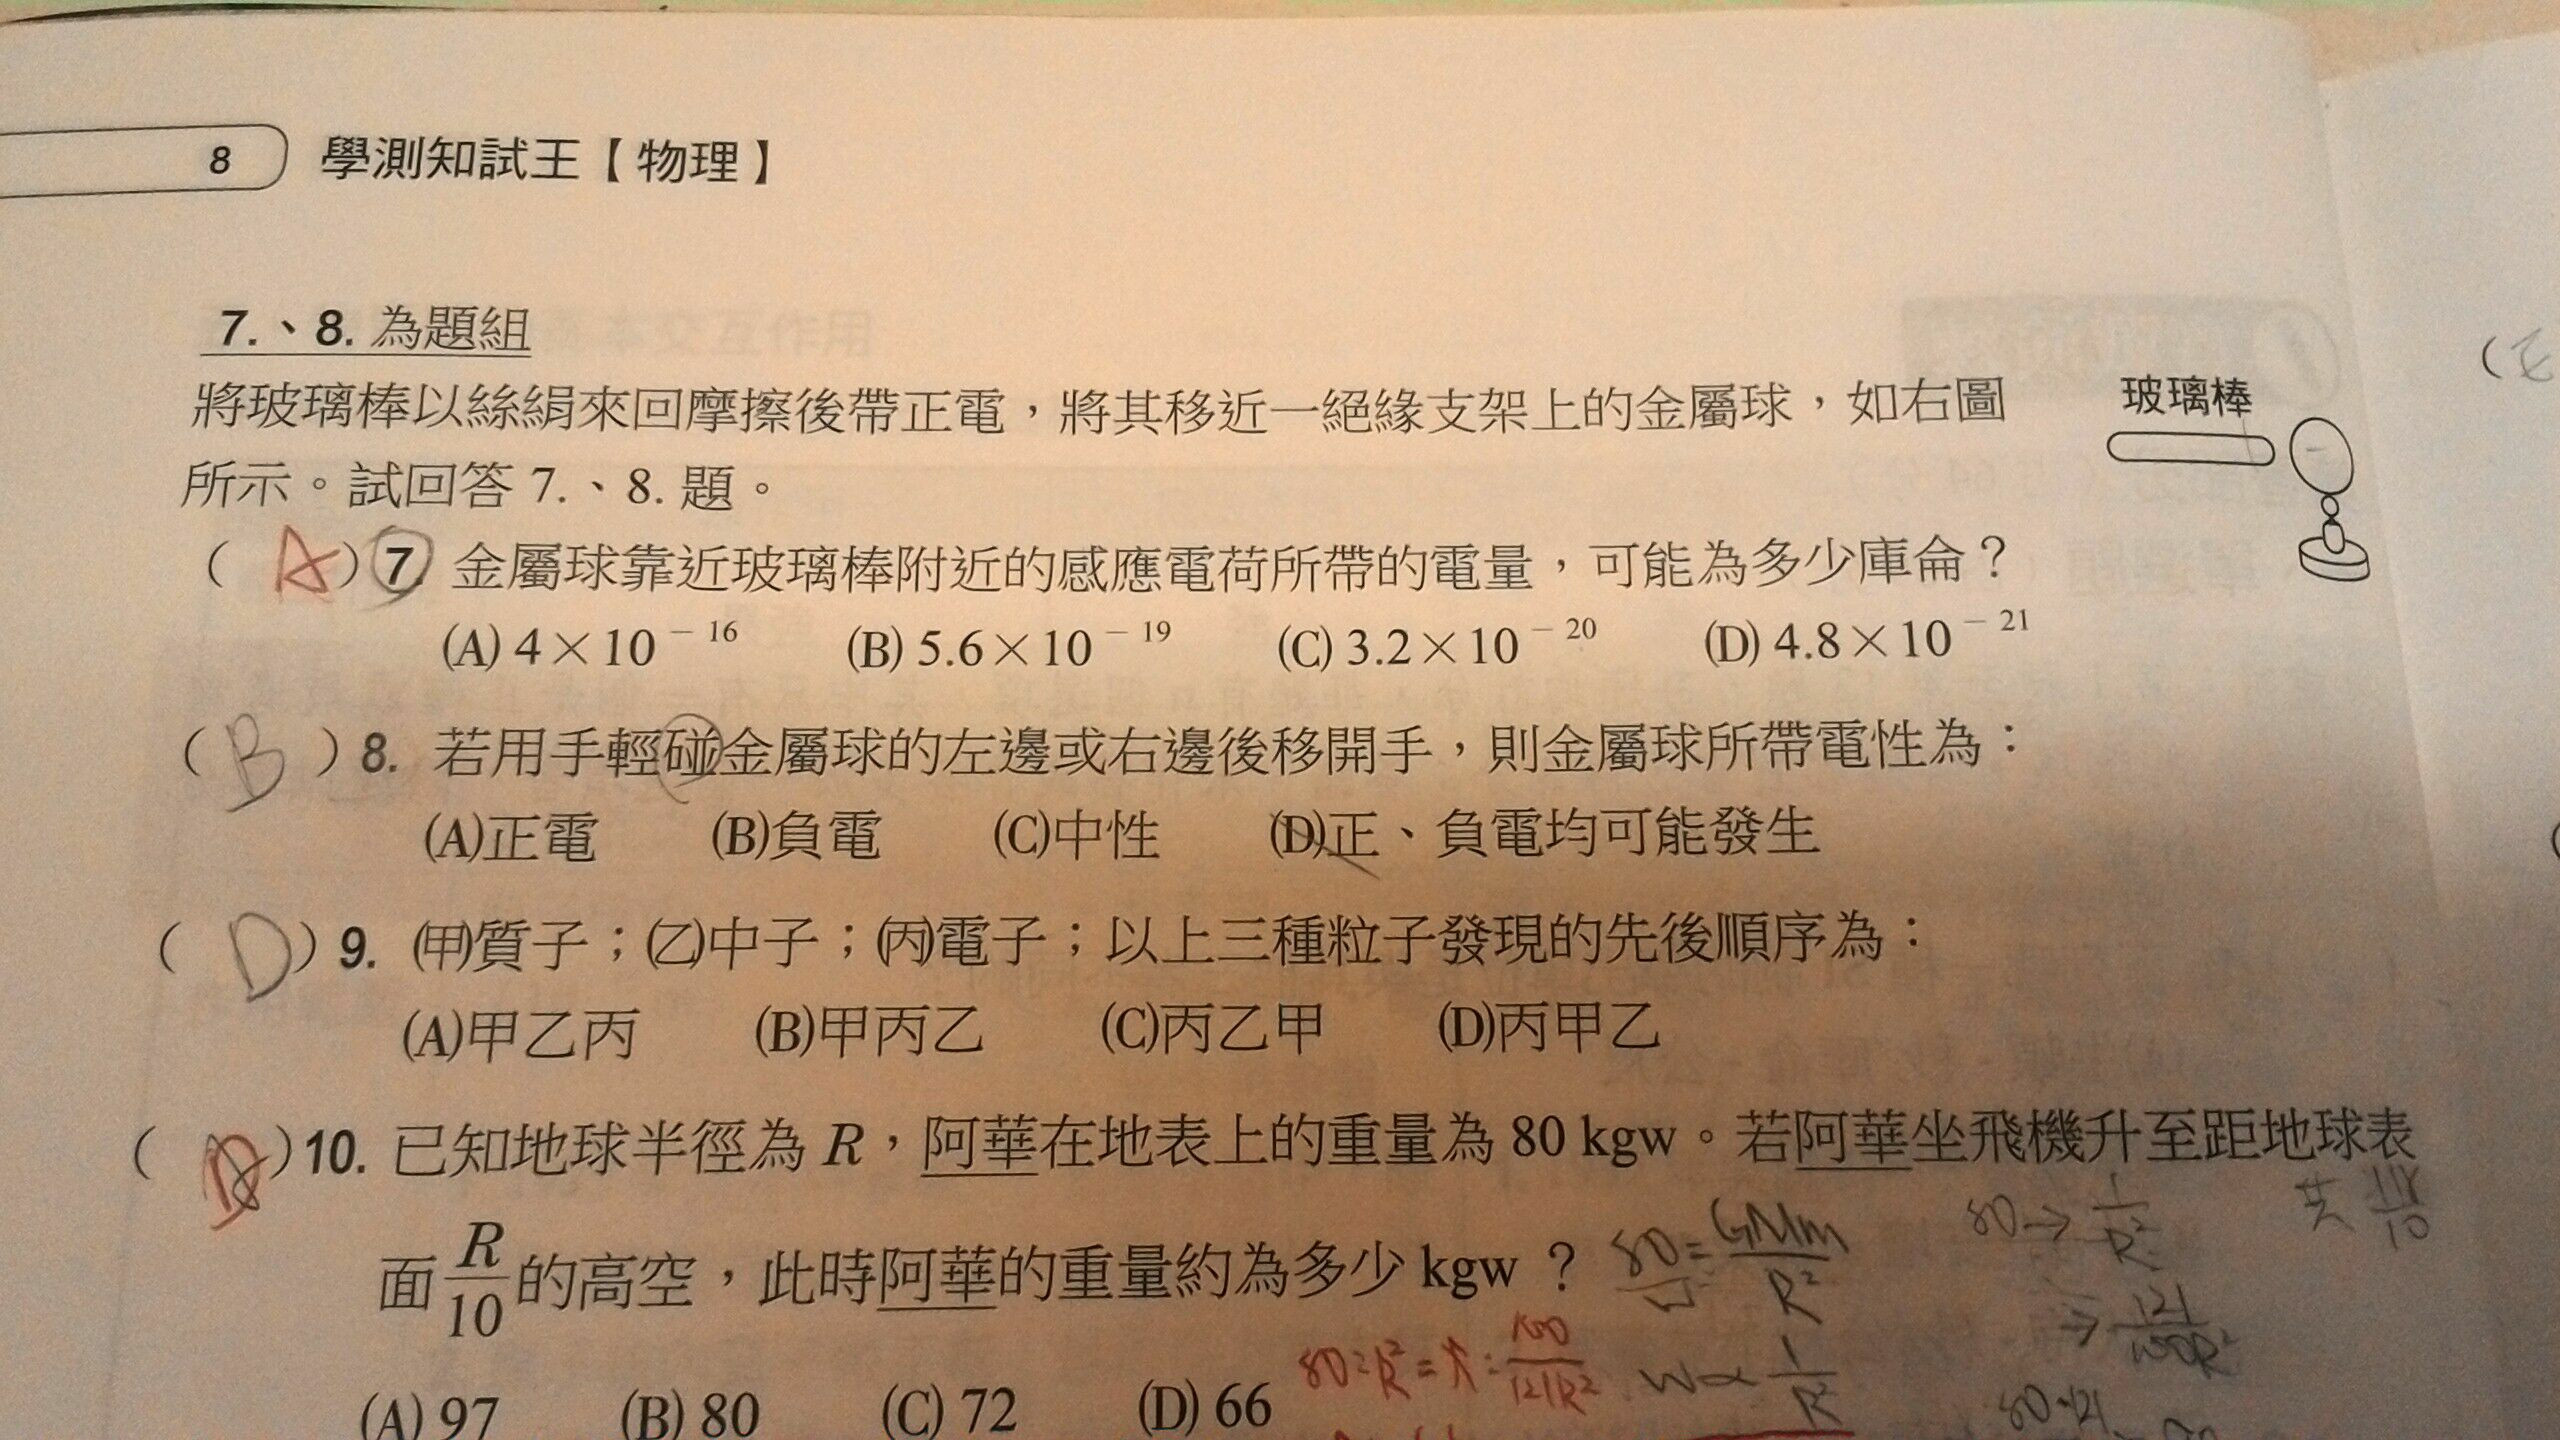 8 學測知試王【物理】
7.、8. 為題組
將玻璃棒以絲絹來回摩擦後帶正電,將其移近一絕緣支架上的金屬球,如右圖
所示。試回答 7.、8. 題。
玻璃棒
( A ) 7. 金屬球靠近玻璃棒附近的感應電荷所帶的電量,可能為多少庫侖?
(A) 4×10⁻¹⁶ (B) 5.6×10⁻¹⁹ (C) 3.2×10⁻²⁰ (D) 4.8×10⁻²¹
( B ) 8. 若用手輕碰金屬球的左邊或右邊後移開手,則金屬球所帶電性為:
(A)正電 (B)負電 (C)中性 (D)正、負電均可能發生
( D ) 9. ㈙質子;㈚中子;㈛電子;以上三種粒子發現的先後順序為:
(A)甲乙丙 (B)甲丙乙 (C)丙乙甲 (D)丙甲乙
( D ) 10. 已知地球半徑為 R,阿華在地表上的重量為 80 kgw。若阿華坐飛機升至距地球表
面 R/10 的高空,此時阿華的重量約為多少 kgw ?
80 = GMm/R²
80 → 1/R²
→ 121/100R²
80 : R² = x : 100/121R²
W ∝ 1/R²
(A) 97 (B) 80 (C) 72 (D) 66
80·121